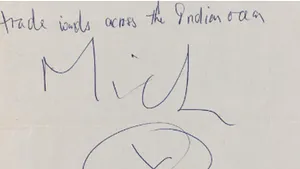 trade winds across the Indian ocean
Mich